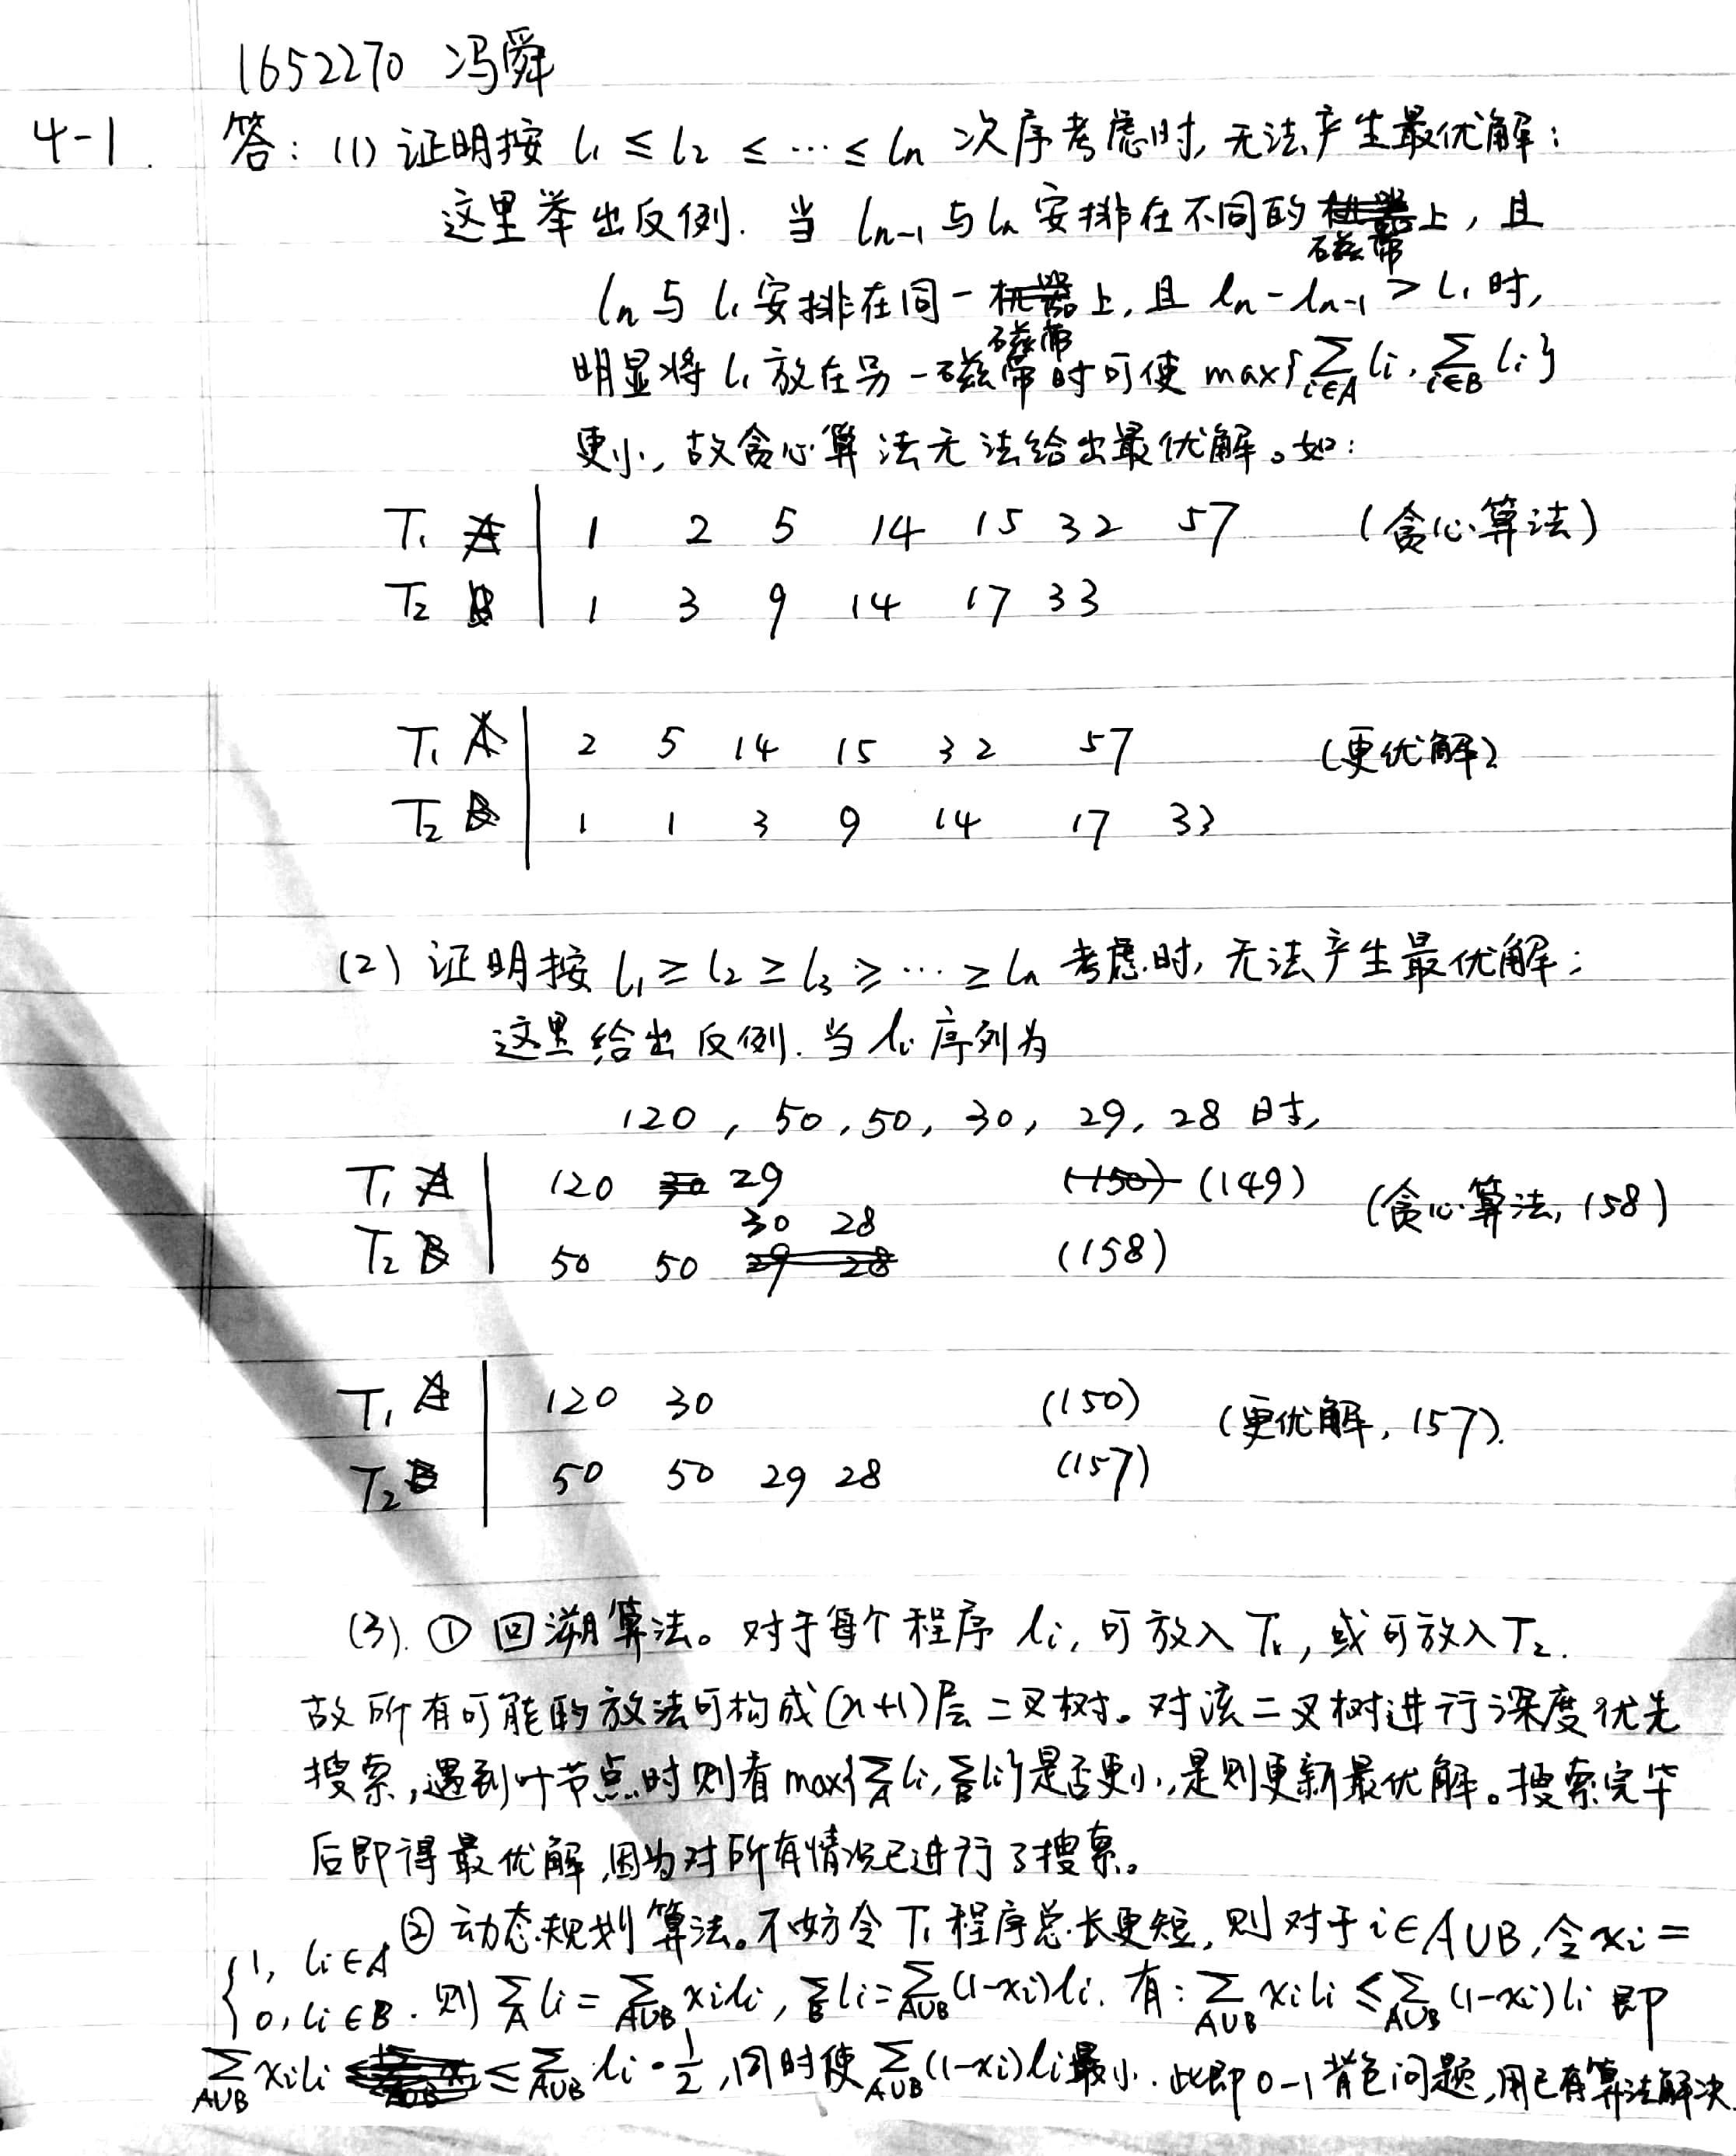 1652270 冯舜
4-1. 答: (1) 证明按 l₁ ≤ l₂ ≤ … ≤ lₙ 次序考虑时, 无法产生最优解:
这里举出反例. 当 lₙ₋₁ 与 lₙ 安排在不同的磁带上, 且
lₙ 与 l₁ 安排在同一磁带上, 且 lₙ - lₙ₋₁ > l₁ 时,
明显将 l₁ 放在另一磁带时可使 max{∑_{i∈A} lᵢ, ∑_{i∈B} lᵢ}
更小, 故贪心算法无法给出最优解。如:
T₁ | 1 2 5 14 15 32 57 (贪心算法)
T₂ | 1 3 9 14 17 33
T₁ | 2 5 14 15 32 57 (更优解)
T₂ | 1 1 3 9 14 17 33
(2) 证明按 l₁ ≥ l₂ ≥ l₃ ≥ … ≥ lₙ 考虑时, 无法产生最优解;
这里给出反例. 当 lᵢ 序列为
120, 50, 50, 30, 29, 28 时,
T₁ | 120 29 (149) (贪心算法, 158)
T₂ | 50 50 30 28 (158)
T₁ | 120 30 (150) (更优解, 157).
T₂ | 50 50 29 28 (157)
(3). ① 回溯算法。对于每个程序 lᵢ, 可放入 T₁, 或可放入 T₂.
故所有可能的放法可构成(n+1)层二叉树。对该二叉树进行深度优先
搜索,遇到叶节点时则看 max{∑_A lᵢ, ∑_B lᵢ}是否更小,是则更新最优解。搜索完毕
后即得最优解,因为对所有情况已进行了搜索。
② 动态规划算法。不妨令 T₁ 程序总长更短, 则对于 i∈A∪B, 令 xᵢ =
{1, lᵢ∈A
0, lᵢ∈B. 则 ∑_A lᵢ = ∑_{A∪B} xᵢlᵢ, ∑_B lᵢ = ∑_{A∪B} (1-xᵢ)lᵢ. 有: ∑_{A∪B} xᵢlᵢ ≤ ∑_{A∪B} (1-xᵢ)lᵢ 即
∑_{A∪B} xᵢlᵢ ≤ ∑_{A∪B} lᵢ · 1/2, 同时使 ∑_{A∪B} (1-xᵢ)lᵢ 最小. 此即 0-1 背包问题, 用已有算法解决.